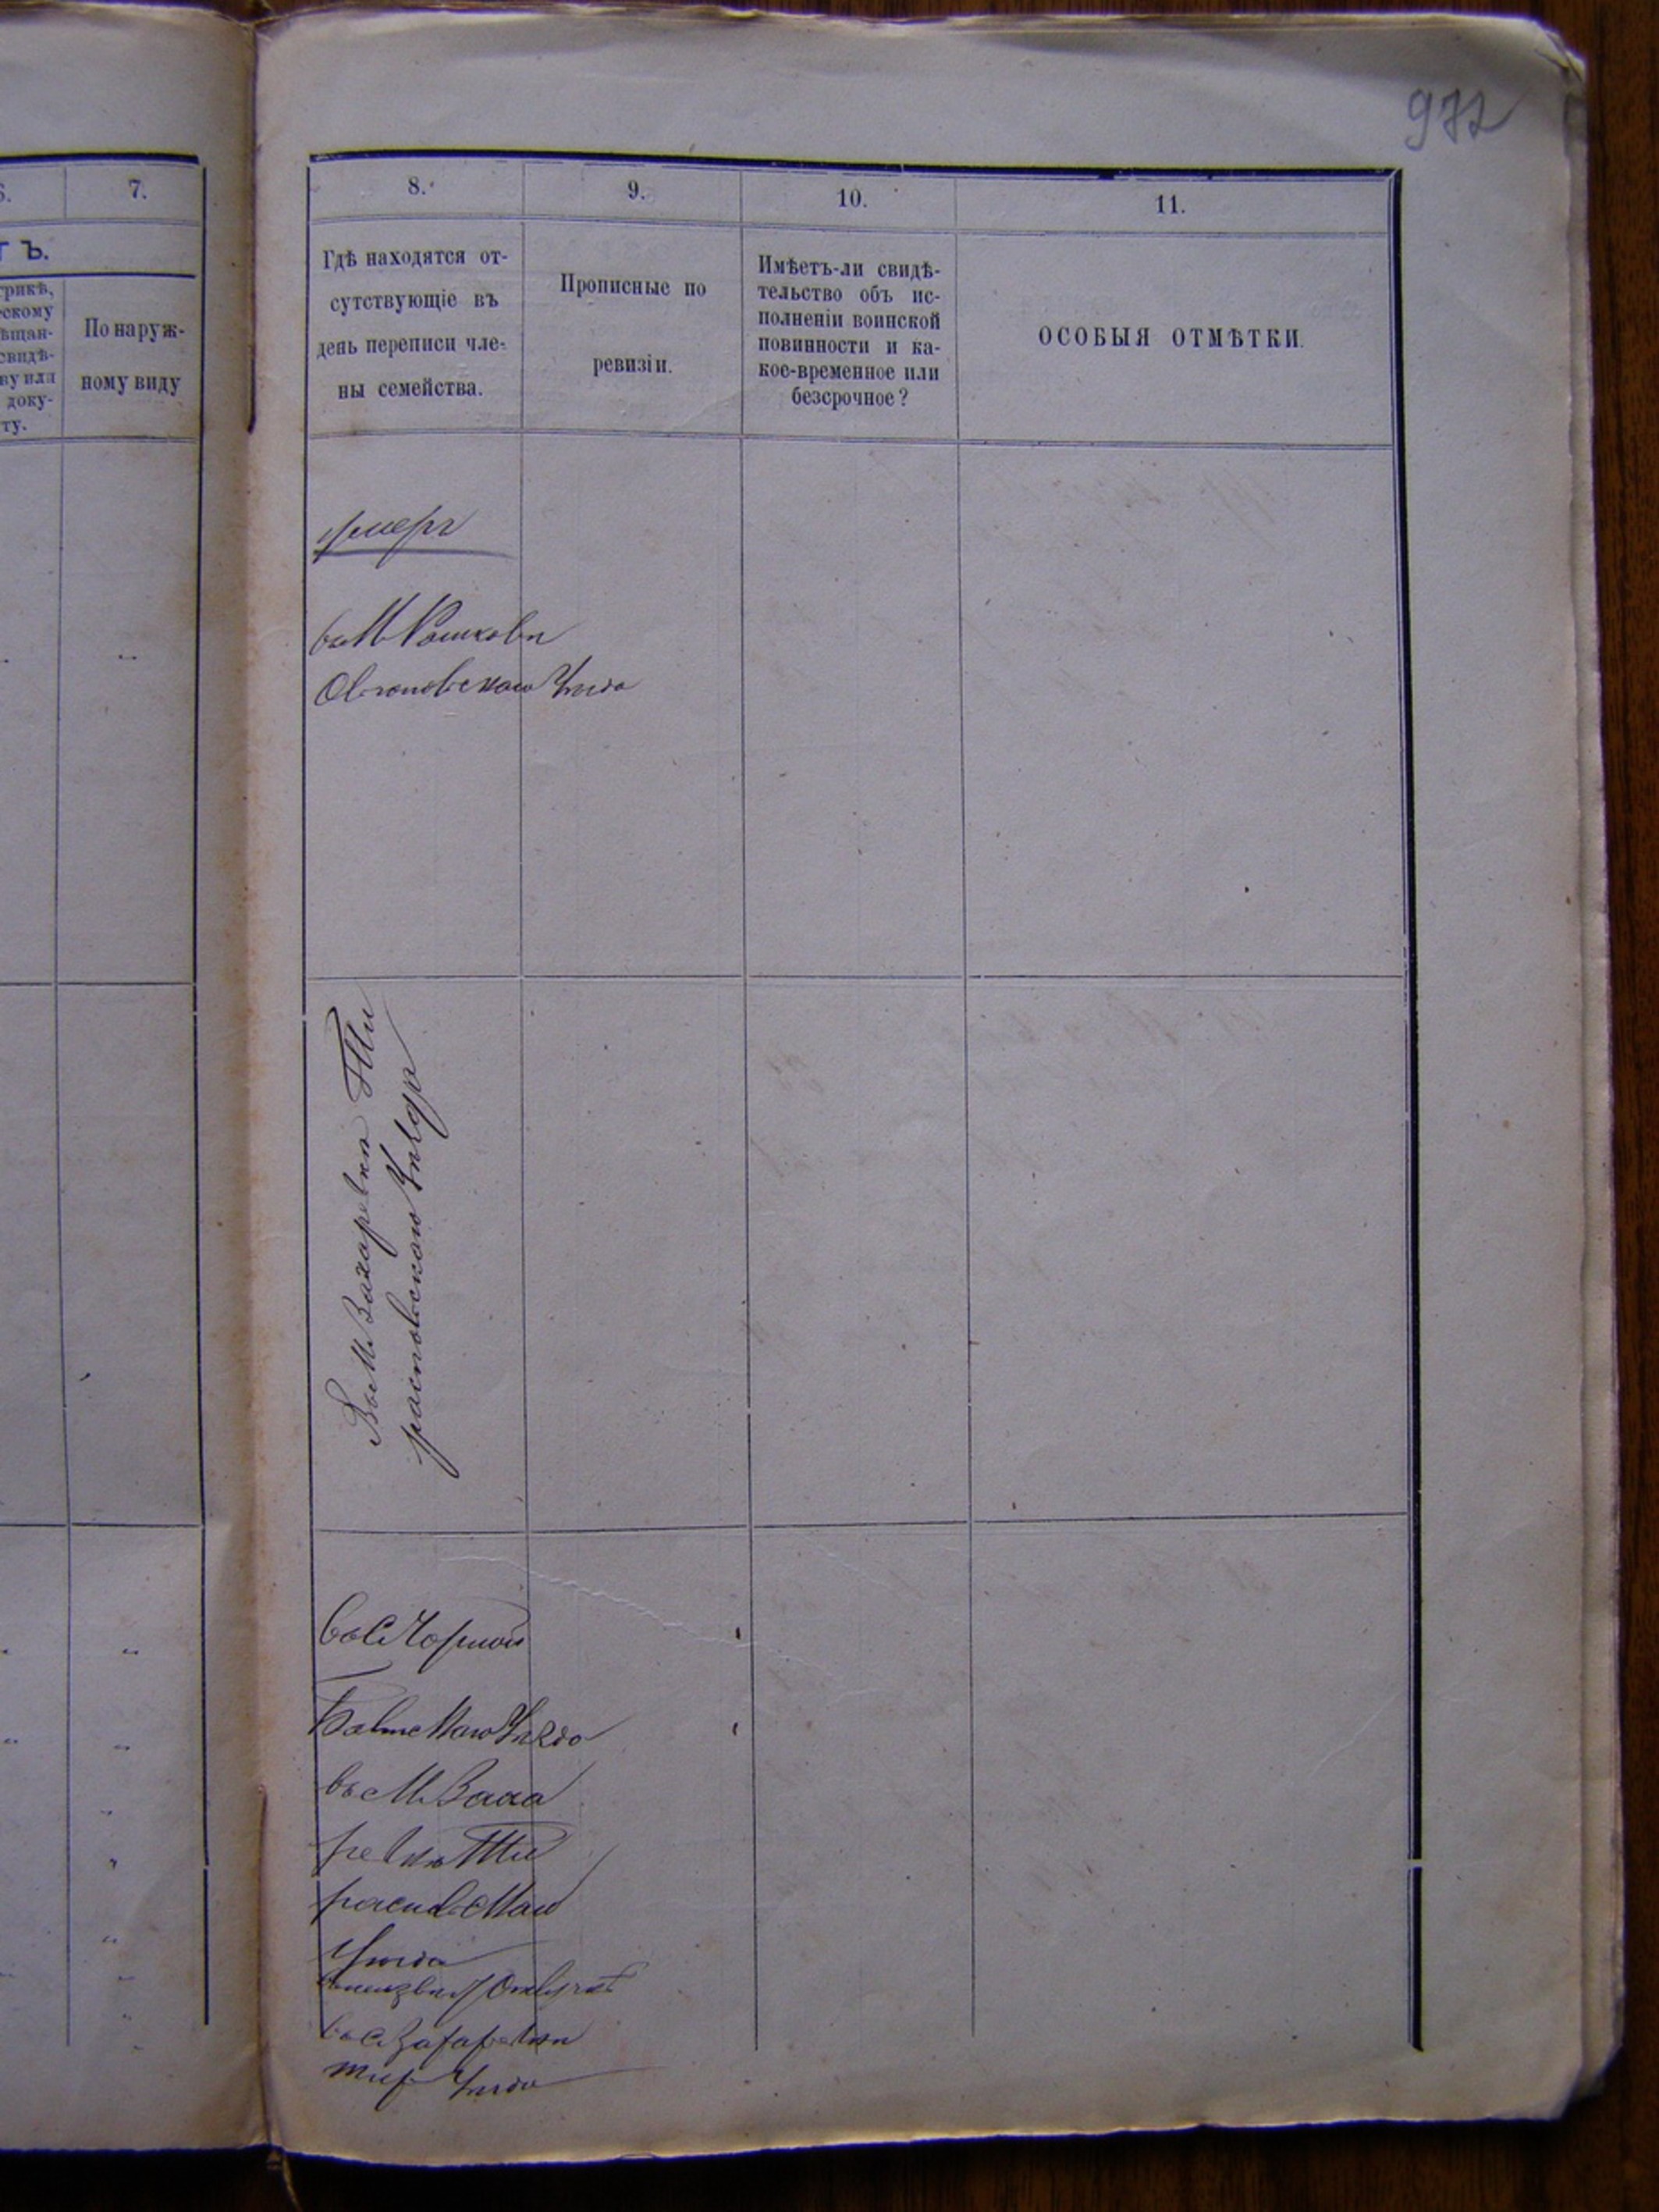 972
6.
7.
ТЪ.
трикѣ,
скому
ѣщан-
свидѣ-
ву или
доку-
ту.
По наруж-
ному виду
8.
9.
10.
11.
Гдѣ находятся от-
сутствующіе въ
день переписи чле-
ны семейства.
Прописные по
ревизіи.
Имѣетъ-ли свидѣ-
тельство объ ис-
полненіи воинской
повинности и ка-
кое-временное или
безсрочное?
ОСОБЫЯ ОТМѢТКИ.
умеръ
въ М. Рашковѣ
Въ М. Захаревкѣ Ти
распольскаго Уѣзда
въ С. Чорной
Уѣзда
въ М. Заха
ревкѣ Ти
распольскаго
Уѣзда
въ С. Захаревкѣ
тир Уѣзда